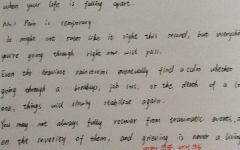 when your life is falling apart.
No.1 Pain is temporary.
It might not seem like it right this second, but everything
you're going through right now will pass.
Even the heaviest rainstorms eventually find a calm whether
going through a breakup, job loss, or the death of a
one, things will slowly stabilize again.
You may not always fully recover from traumatic events,
on the severity of them, and grieving is never a linear